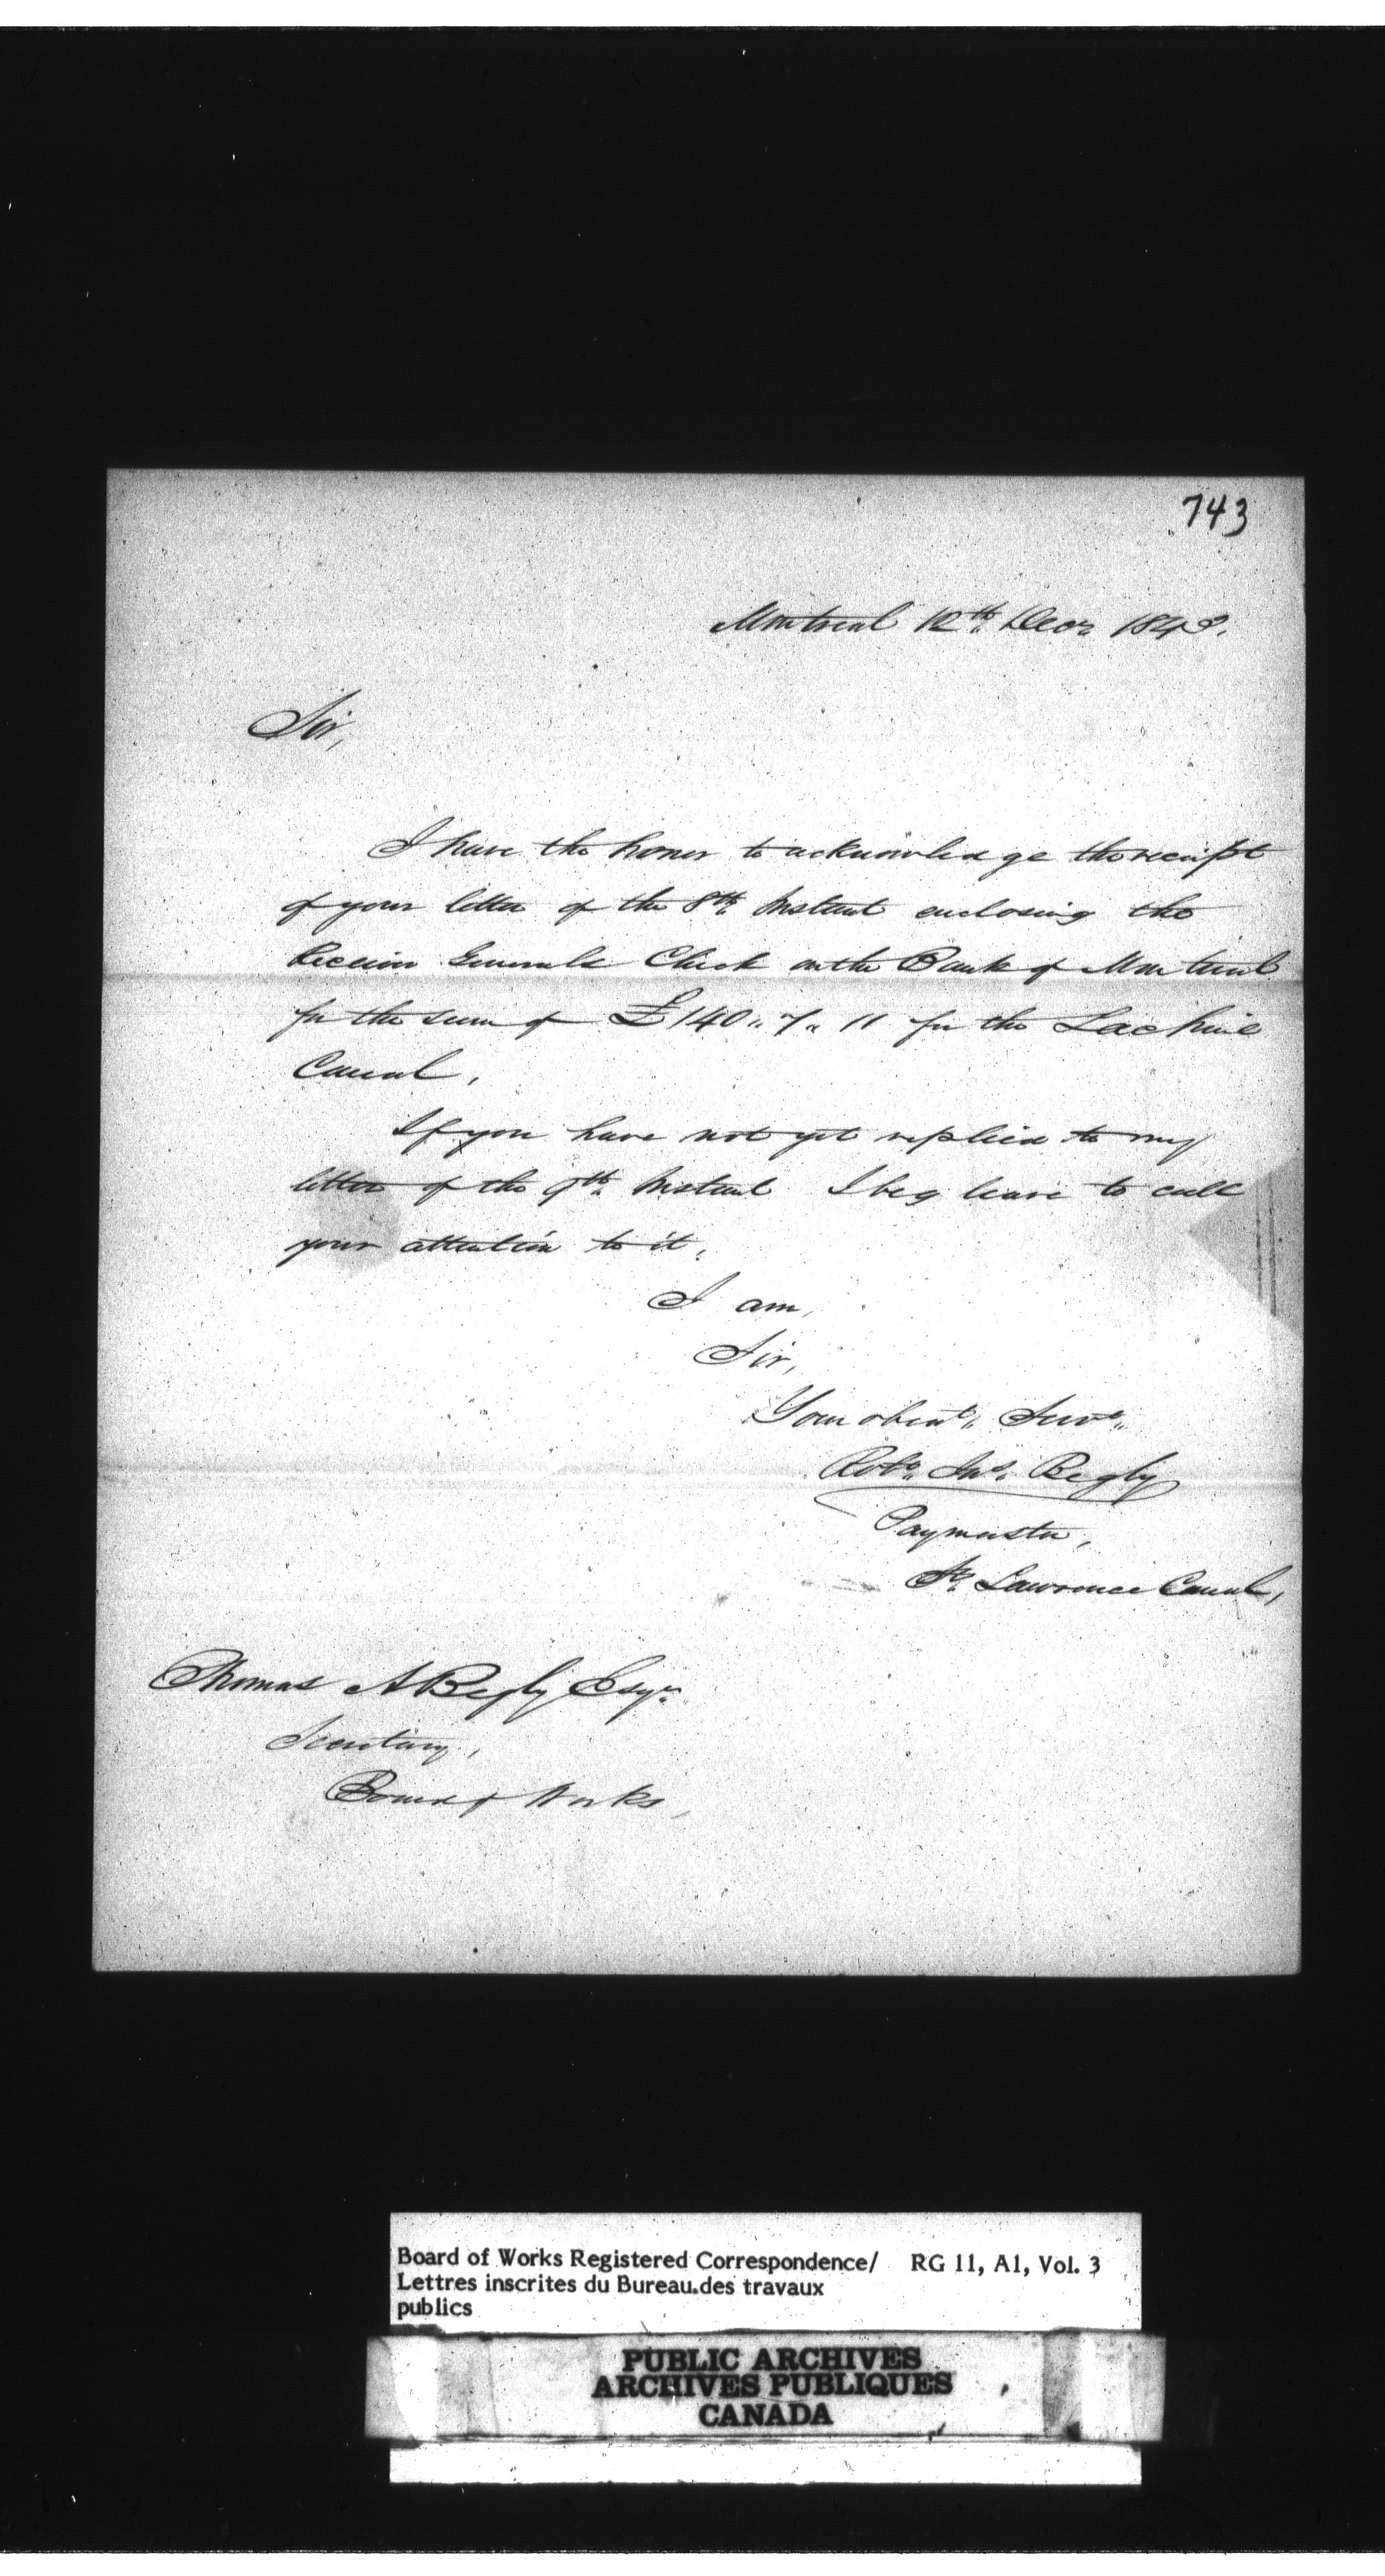 743
Montreal 12th Decr 1843.
Sir,
I have the honor to acknowledge the receipt
of your letter of the 8th Instant enclosing the
Receiver Generals Check on the Bank of Montreal
for the sum of £140 " 7 " 11 for the Lachine
Canal,
If you have not yet replied to my
letter of the 9th Instant I beg leave to call
your attention to it,
I am,
Sir,
Your obedt " Servt "
Robt Jas Begly
Paymaster,
St. Lawrence Canal,
Thomas A Begly Esqr
Secretary,
Board of Works,
Board of Works Registered Correspondence/ RG 11, A1, Vol. 3
Lettres inscrites du Bureau des travaux
publics
PUBLIC ARCHIVES
ARCHIVES PUBLIQUES
CANADA